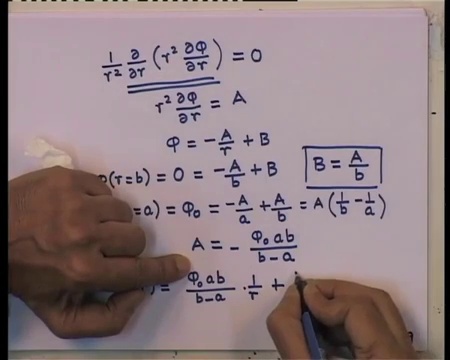 1/r² ∂/∂r (r² ∂φ/∂r) = 0
r² ∂φ/∂r = A
φ = -A/r + B
(r=b) = 0 = -A/b + B
B = A/b
=a) = φ₀ = -A/a + A/b = A(1/b - 1/a)
A = - φ₀ab/b-a
) = φ₀ab/b-a · 1/r +